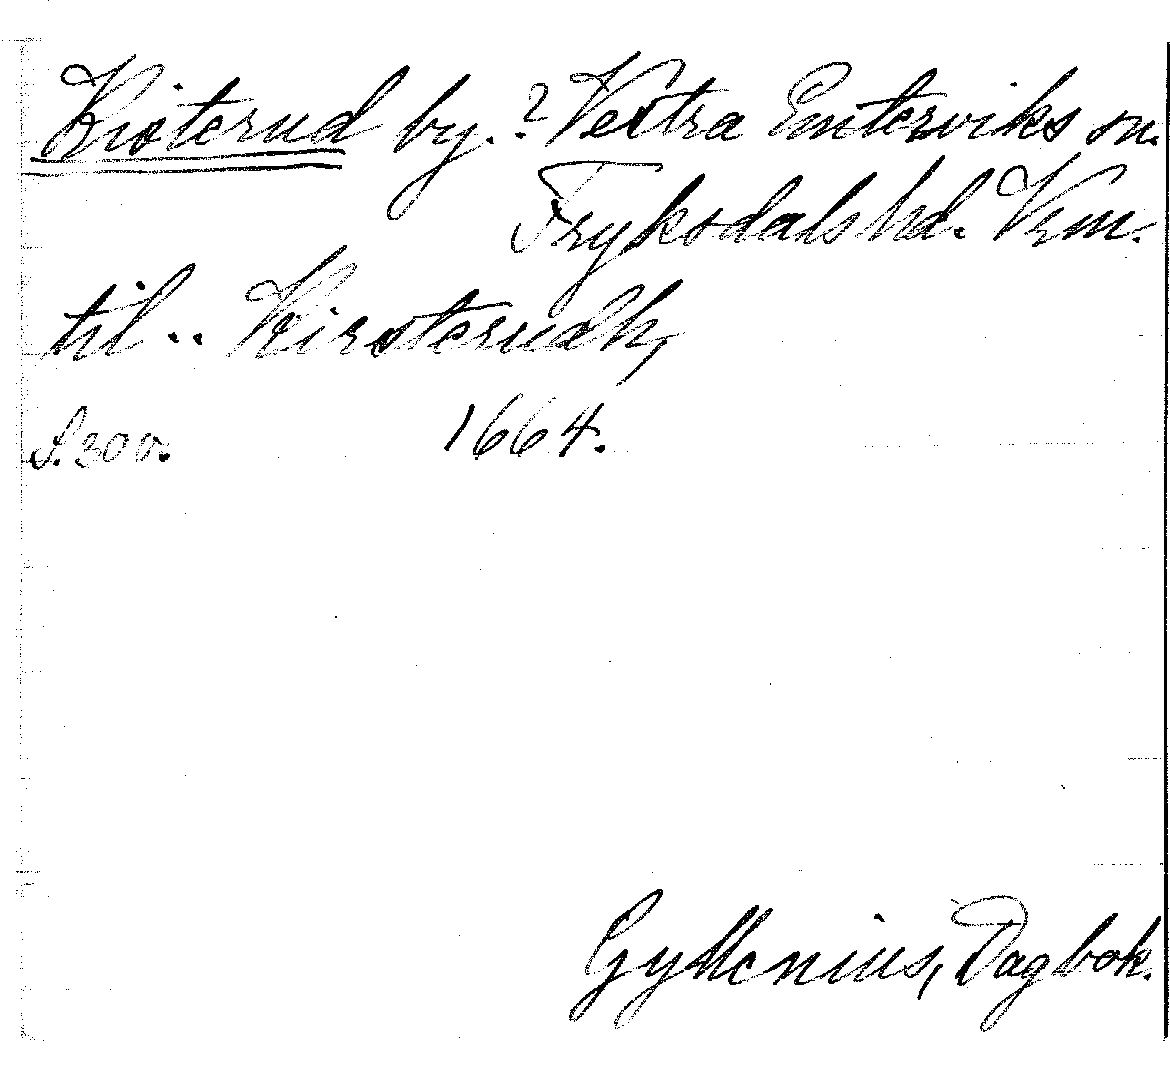 Kisterud by. ? Vestra Emterviks sn.
Fryksdals hd. Vrm.
til .. Kirsterudh,
S. 300. 1664.
Gyllenius, Dagbok.